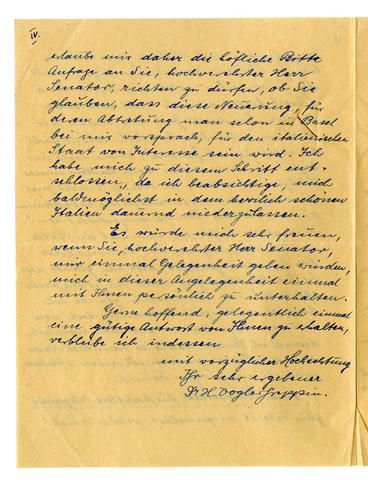 IV.
erlaube mir daher die höfliche Bitte
Anfrage an Sie, hochverehrter Herr
Senator, richten zu dürfen, ob Sie
glauben, dass diese Neuerung, für
deren Abtretung man schon in Basel
bei mir vorsprach, für den italienischen
Staat von Interesse sein wird. Ich
habe mich zu diesem Schritt ent-
schlossen, da ich beabsichtige, mich
baldmöglichst in dem herrlich schönen
Italien dauernd niederzulassen.
Es würde mich sehr freuen,
wenn Sie, hochverehrter Herr Senator,
mir einmal Gelegenheit geben würden,
mich in dieser Angelegenheit einmal
mit Ihnen persönlich zu unterhalten.
Gerne hoffend, gelegentlich einmal
eine gütige Antwort von Ihnen zu erhalten,
verbleibe ich indessen
mit vorzüglicher Hochachtung
Ihr sehr ergebener
Dr. H. Vogler